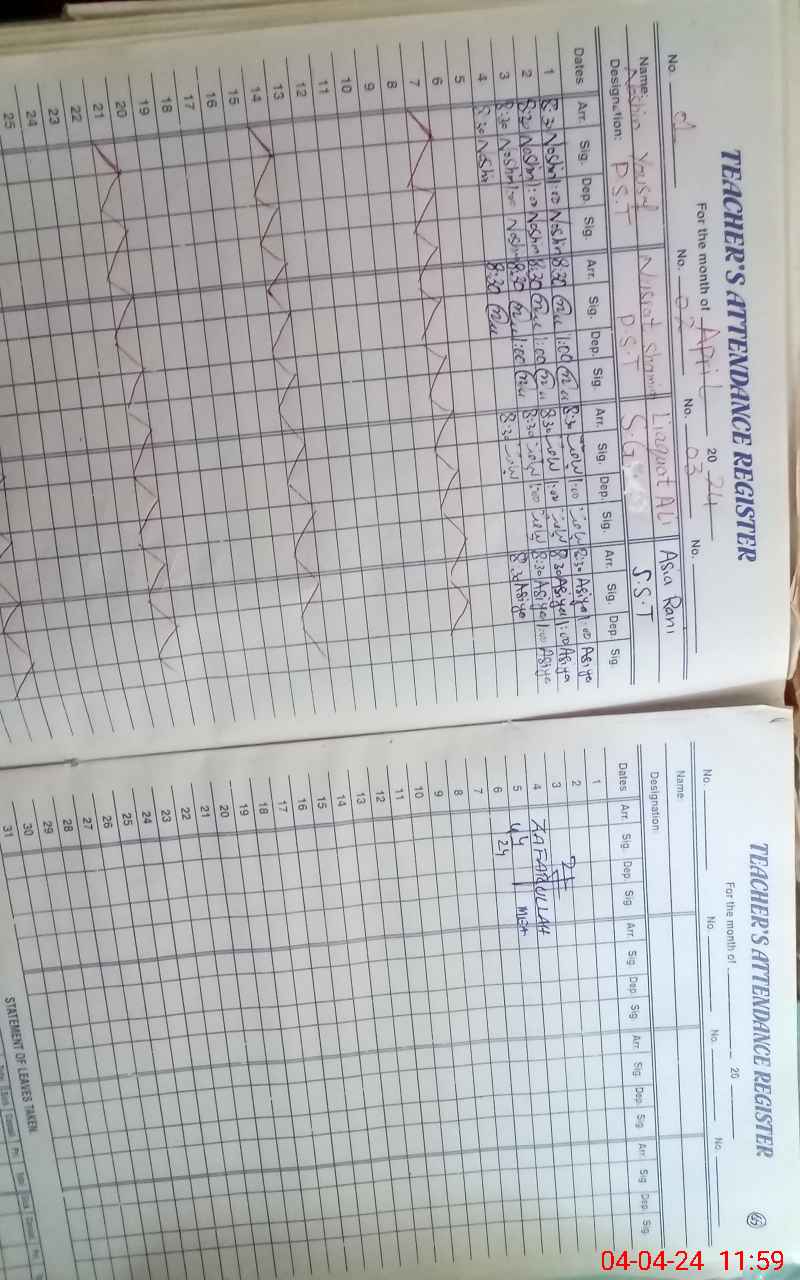 TEACHER'S ATTENDANCE REGISTER
For the month of April 2024
No. 01 No. 02 No. 03 No.
Name: Noshin Yousaf Nusrat Shamim Liaquat Ali Asia Rani
Designation: P.S.T P.S.T S.G S.S.T
Dates Arr. Sig. Dep. Sig. Arr. Sig. Dep. Sig. Arr. Sig. Dep. Sig. Arr. Sig. Dep. Sig.
1 8:30 Noshin 1:00 Noshin 8:30 1:00 8:30 1:00 8:30 Asiya 1:00 Asiya
2 8:30 Noshin 1:00 Noshin 8:30 1:00 8:30 1:00 8:30 Asiya 1:00 Asiya
3 8:30 Noshin 1:00 Noshin 8:30 1:00 8:30 1:00 8:30 Asiya 1:00 Asiya
4 8:30 Noshin 8:30 8:30 8:30 Asiya
5
6
7
8
9
10
11
12
13
14
15
16
17
18
19
20
21
22
23
24
25
TEACHER'S ATTENDANCE REGISTER
For the month of 20
No. No. No. No.
Name:
Designation:
Dates Arr. Sig. Dep. Sig. Arr. Sig. Dep. Sig. Arr. Sig. Dep. Sig. Arr. Sig. Dep. Sig.
1
2
3
4 ZAFARULLAH
5 4/4 MEA
6 24
7
8
9
10
11
12
13
14
15
16
17
18
19
20
21
22
23
24
25
26
27
28
29
30
31
STATEMENT OF LEAVES TAKEN
04-04-24 11:59